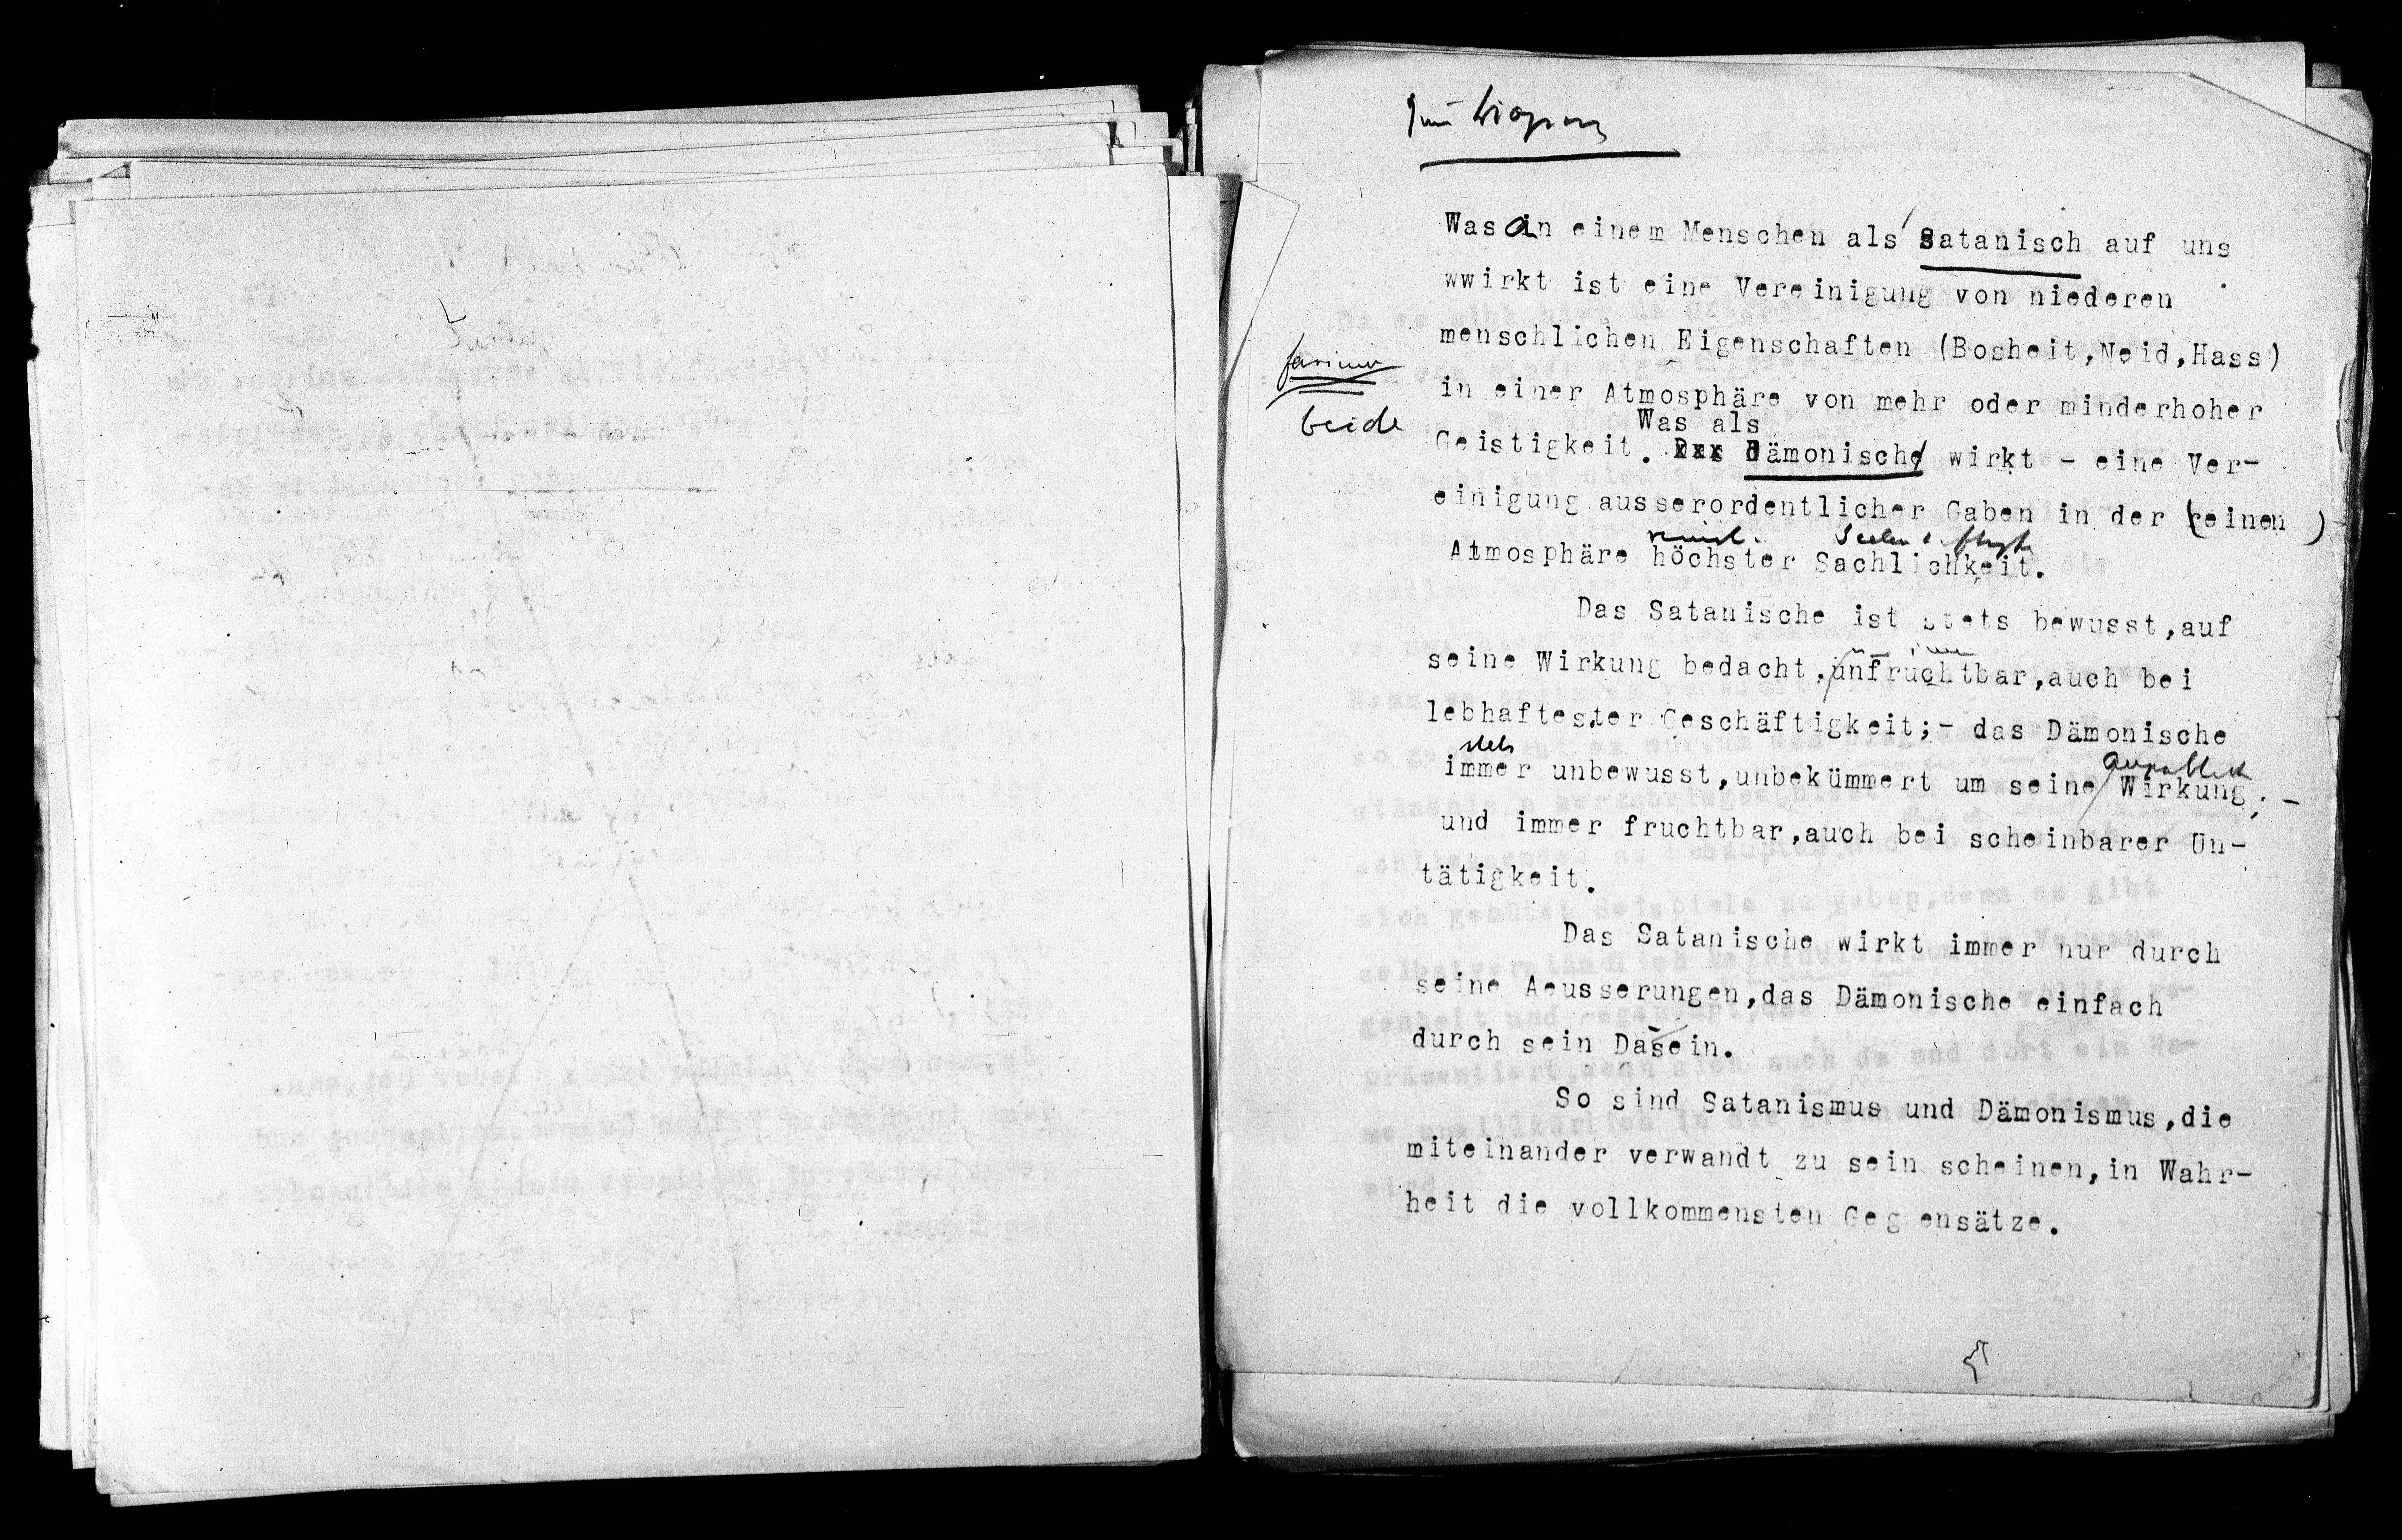 Was an einem Menschen als satanisch auf uns
wwirkt ist eine Vereinigung von niederen
menschlichen Eigenschaften (Bosheit,Neid,Hass)
in einer Atmosphäre von mehr oder minderhoher
Was als
Geistigkeit. Dxx dämonisch wirkt - eine Ver-
beide
einigung ausserordentlicher Gaben in der (reinen)
Atmosphäre höchster Sachlichkeit.
Das Satanische ist stets bewusst,auf
seine Wirkung bedacht,unfruchtbar,auch bei
lebhaftester Geschäftigkeit;- das Dämonische
stets
immer unbewusst,unbekümmert um seine Wirkung;-
und immer fruchtbar,auch bei scheinbarer Un-
tätigkeit.
Das Satanische wirkt immer nur durch
seine Aeusserungen,das Dämonische einfach
durch sein Dasein.
So sind Satanismus und Dämonismus,die
miteinander verwandt zu sein scheinen,in Wahr-
heit die vollkommensten Gegensätze.